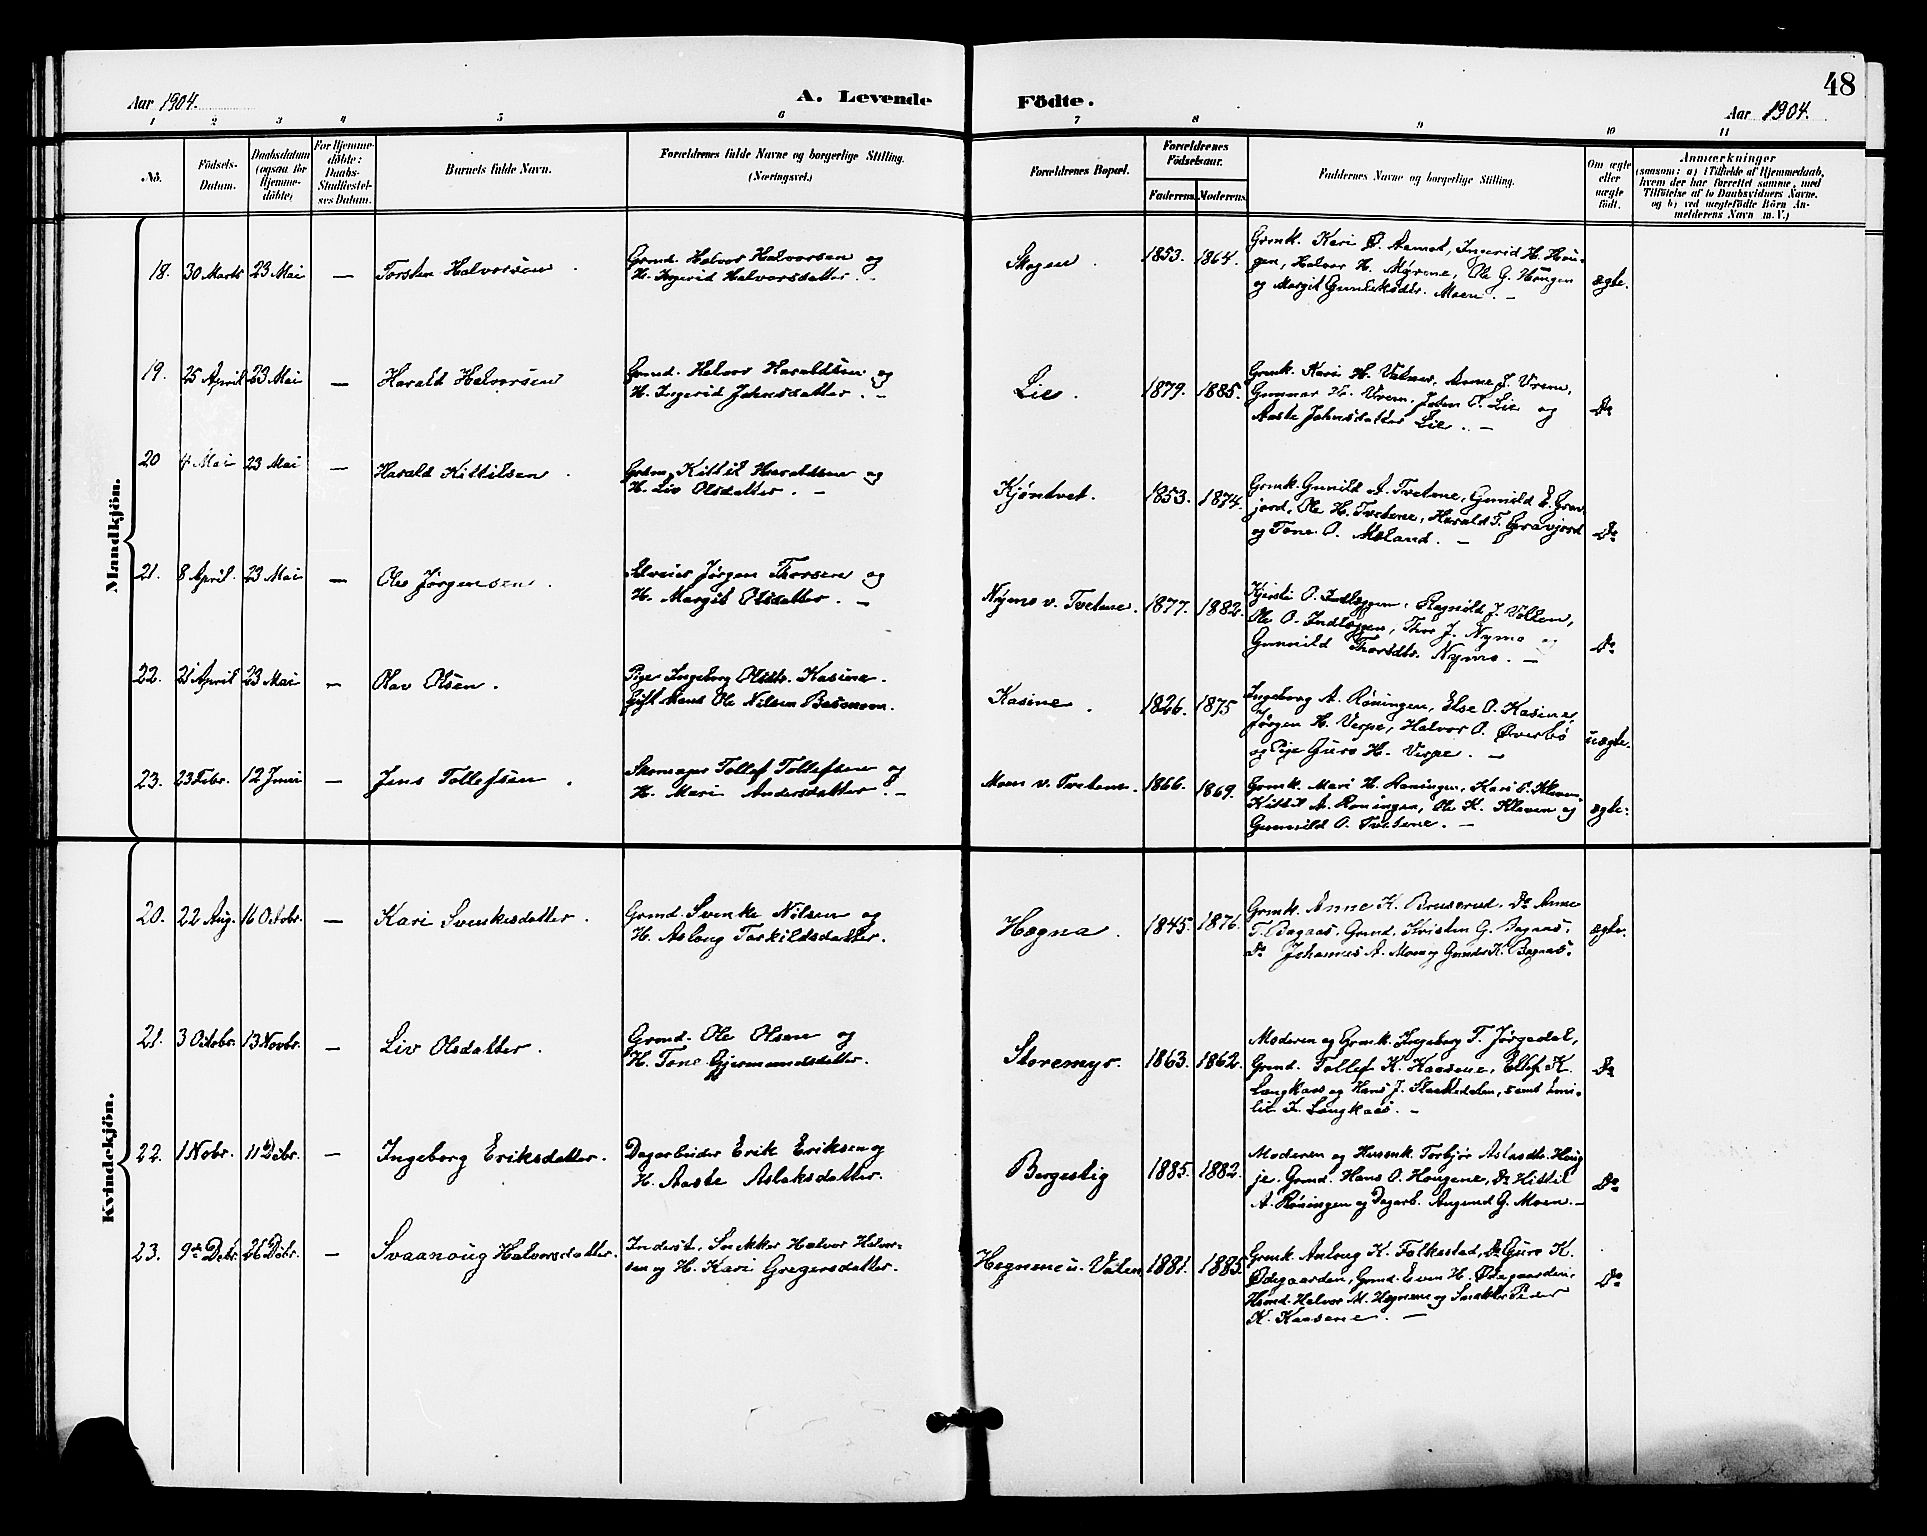 48
Aar 1904. A. Levende Födte. Aar 1904.
1 2 3 4 5 6 7 8 9 10 11
No. Födsels-Datum. Daabsdatum (ogsaa for Hjemmedöbte) For Hjemmedöbte: Daabs-Stadfæstelses Datum. Barnets fulde Navn. Forældrenes fulde Navne og borgerlige Stilling. (Næringsvei.) Forældrenes Bopæl. Forældrenes Födselsaar. Faderens. Moderens. Faddernes Navne og borgerlige Stilling. Om ægte eller uægte födt. Anmærkninger (saasom: a) i Tilfælde af Hjemmedaab, hvem der har forrettet samme, med Tilföielse af to Daabsvidners Navne, og b) ved uægtefödte Börn Anmelderens Navn m. V.)
Mandkjön.
18. 30 Marts 23 Mai — Torsten Halvorsen. Grmd. Halvor Halvorsen og
H. Ingerid Halvorsdatter. — Skogen. 1853. 1864. Grmk. Kari Aamot, Ingerid H. Hougen, Halvor H. Myrene, Ole G. Hougen
og Margit Gunleiksdtr. Moen. — ægte.
19. 25 April 23 Mai — Harald Halvorsen Grmd. Halvor Haraldsen og
H. Ingerid Johnsdatter. — Lie. 1879. 1885. Grmk. Kari H. Anne J. Vreim,
Gunnar H. Vreim, John Lie og
Aaste Johnsdatter Lie. — Do
20 4 Mai 23 Mai — Harald Kittilsen. Grdm. Kittil Haraldsen og
H. Liv Olsdatter. — Kjöntvet. 1853. 1874. Grmk. Gunild A. Tvetene, Gunild E. Gravjord, Ole H. Tvetene, Harald T. Gravjord
og Tone O. Moland. — Do
21. 8 April. 23 Mai — Ole Jörgensen. Selveier Jörgen Thorsen og
H. Margit Olsdatter. — Nymo v. Tvetene. 1877. 1882. Kjersti O. Indlæggen, Ragnild J. Vollen,
Ole O. Indlæggen, Thor J. Nymo og
Gunnild Thorsdtr. Nymo. — Do
22. 21 April 23 Mai — Olav Olsen. Pige Ingeborg Olsdtr. Kasine.
Gift Mand Ole Nilsen Kasine. 1826. 1875 Ingeborg A. Röningen, Else O. Kasine,
Jörgen H. Verpe, Halvor O. Överbö
og Pige Guro H. Verpe. — uægte.
23. 23 Febr. 12 Juni — Jens Tollefsen. Skomager Tollef Tollefsen og
H. Mari Andersdatter. — Moen v. Tvetene. 1866. 1869. Grmk. Mari H. Röningen, Kari O. Kleven,
Kittil A. Röningen, Ole K. Kleven og
Gunnild O. Tvetene. — ægte.
Kvindekjön.
20. 22 Aug. 16 Octobr. — Kari Svenkesdatter. Grmd. Svenke Nilsen og
H. Aslaug Torkildsdatter. Hægna. 1845. 1876. Grmk. Anne K. Bruserud, Do Anne
T. Bagaas, Grmd. Kristen G. Bagaas,
Do Johannes A. Moen og Gunder K. Bagaas. ægte.
21. 3 Octobr. 13 Novbr. — Liv Olsdatter. Grmd. Ole Olsen og
H. Tone Gjermundsdatter. Storemyr. 1863. 1862. Moderen og Grmk. Ingeborg T. Jörgedal,
Grmd. Tollef K. Kaasene, Ellef K.
Langkaas og Hans J. Slaakedalen, samt Emilie K. Langkaas. — Do
22. 1 Nobr. 11 Debr. — Ingeborg Eriksdatter. Dagarbeider Erik Eriksen og
H. Aaste Aslaksdatter. Borgestig 1885. 1882. Moderen og Husmk. Torbjör Aslasdtr. Haugje, Grmd. Hans O. Haugene, Do Kittil
A. Röningen og Dagarb. Aagund G. Moen. — Do
23. 9de Debr. 26 Debr. — Svaanoug Halvorsdatter. Inderst, Snekker Halvor Halvorsen og H. Kari Gregersdatter. Hægnene u. Vaten 1881. 1885. Grmk. Anlaug K. Folkestad, Do Guro K.
Ödegaarden, Grmd. Even H. Ödegaarden,
Husmd. Halvor M. Hægnene og Snekker Peder
K. Kaasene. — Do